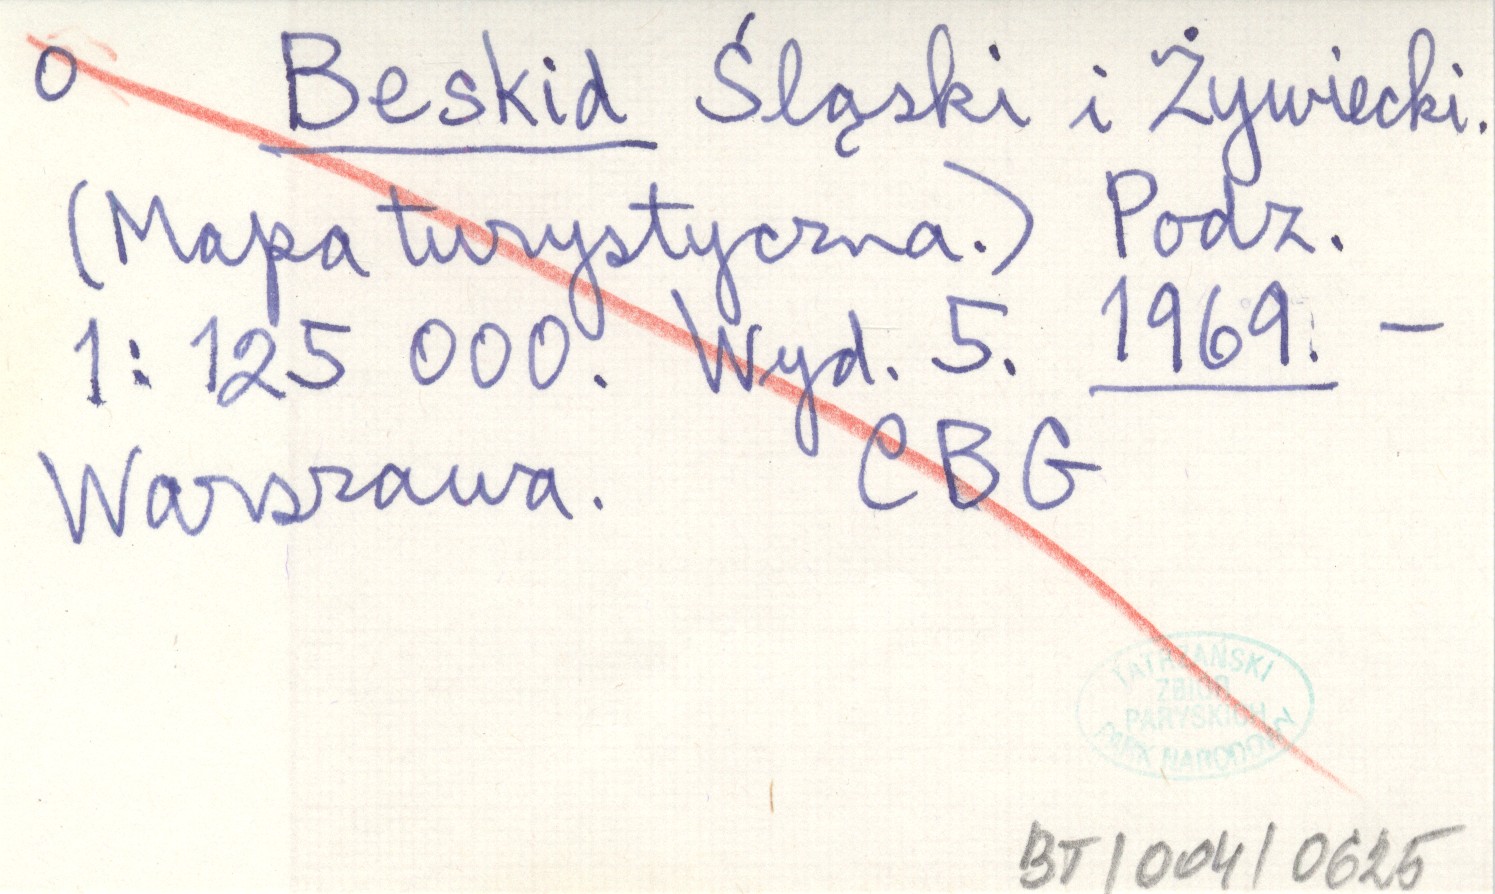 o Beskid Śląski i Żywiecki.
(Mapa turystyczna.) Podz.
1:125 000. Wyd. 5. 1969. –
Warszawa. CBG
TATRZAŃSKI
ZBIOR
PARYSKICH
PARK NARODOWY
BT/004/0625